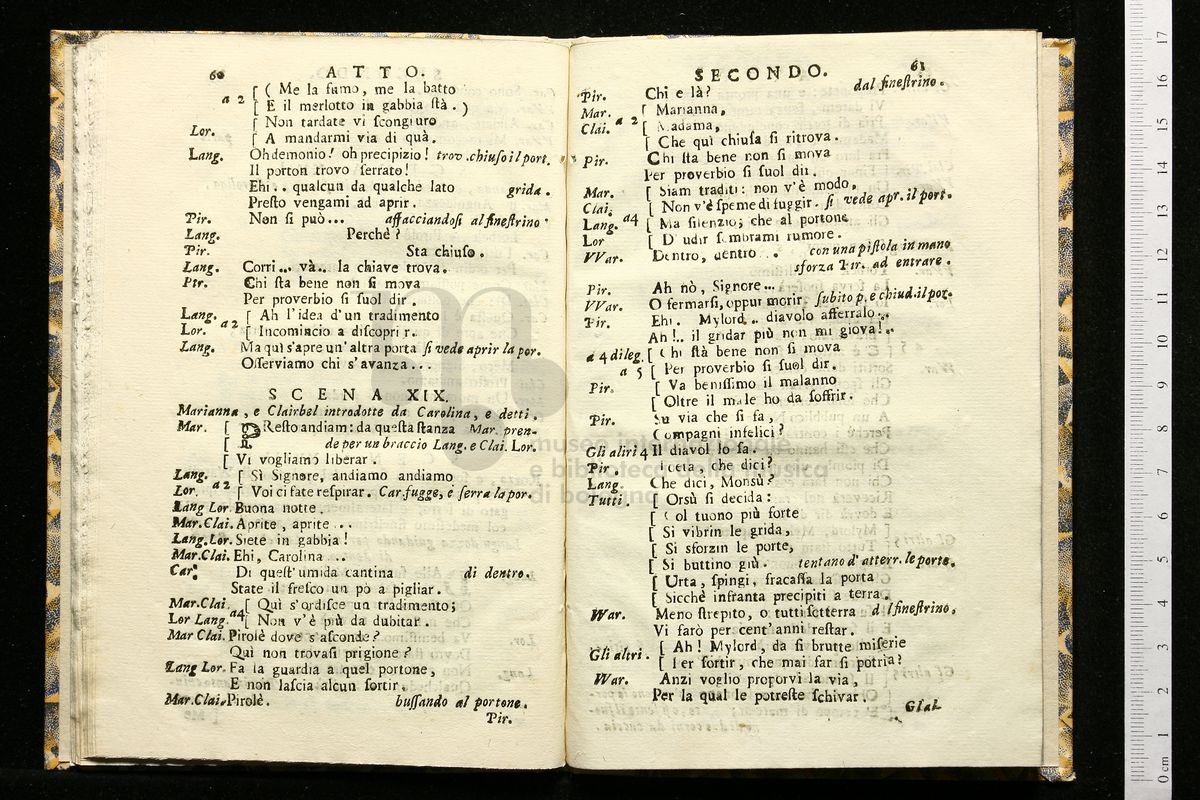 60 ATTO.
a 2 [ ( Me la fumo, me la batto
[ E il merlotto in gabbia ſtà. )
Lor. [ Non tardate vi ſcongiuro
[ A mandarmi via di quà.
Lang. Oh demonio! oh precipizio! trov. chiuſo il port.
Il porton trovo ſerrato!
Ehi.. qualcun da qualche lato grida.
Preſto vengami ad aprir.
Pir. Non ſi può... affacciandoſi al fineſtrino
Lang. Perchè?
Pir. Sta chiuſo.
Lang. Corri... và.. la chiave trova.
Pir. Chi ſta bene non ſi mova
Per proverbio ſi ſuol dir.
Lang. [ Ah l'idea d'un tradimento
Lor. a 2 [ Incomincio a diſcoprir.
Lang. Ma quì s'apre un' altra porta ſi vede aprir la por.
Oſſerviamo chi s'avanza...
SCENA XIX.
Marianna, e Clairbel introdotte da Carolina, e detti.
Mar. [ PReſto andiam: da queſta ſtanza Mar. pren-
[ de per un braccio Lang. e Clai. Lor.
[ Vi vogliamo liberar.
Lang. [ Sì Signore, andiamo andiamo
Lor. a 2 [ Voi ci fate reſpirar. Car. fugge, e ſerra la por.
Lang Lor. Buona notte.
Mar. Clai. Aprite, aprite...
Lang. Lor. Siete in gabbia!
Mar. Clai. Ehi, Carolina...
Car. Di queſt'umida cantina di dentro.
State il freſco un pò a pigliar.
Mar. Clai. [ Quì s'ordiſce un tradimento;
Lor Lang. a4 [ Non v'è più da dubitar.
Mar Clai. Pirolè dove s'aſconde?
Quì non trovaſi prigione?
Lang Lor. Fa la guardia a quel portone,
E non laſcia alcun ſortir.
Mar. Clai. Pirolè. buſſando al portone.
Pir.
SECONDO. 61
Pir. Chi e là? dal fineſtrino.
Mar. [ Marianna,
Clai. a 2 [ Madama,
[ Che quì chiuſa ſi ritrova.
Pir. Chi ſta bene non ſi mova
Per proverbio ſi ſuol dir.
Mar. [ Siam traditi: non v'è modo,
Clai. [ Non v'è ſpeme di fuggir. ſi vede apr. il port.
Lang. a4 [ Ma ſilenzio; che al portone
Lor [ D' udir ſembrami rumore.
VVar. Dentro, dentro... con una piſtola in mano
sforza Pir. ad entrare.
Pir. Ah nò, Signore...
VVar. O fermarſi, oppur morir ſubito p. e chiud. il por.
Pir. Ehi. Mylord.. diavolo afferralo...
Ah!.. il gridar più non mi giova!..
a 4 di leg. [ Chi ſtà bene non ſi mova
a 5 [ Per proverbio ſi ſuol dir.
Pir. [ Va beniſſimo il malanno
[ Oltre il male ho da ſoffrir.
Pir. Su via che ſi fa,
Compagni infelici?
Gli altri 4 Il diavol lo ſa.
Pir. che dici?
Lang. Che dici, Monsù?
Tutti. [ Orsù ſi decida:
[ Col tuono più forte
[ Si vibrin le grida,
[ Si sforzin le porte,
[ Si buttino giù. tentano d'atterr. le porte.
[ Urta, ſpingi, fracaſſa la porta
[ Sicchè infranta precipiti a terra.
War. Meno ſtrepito, o tutti ſotterra dal fineſtrino.
Vi farò per cent'anni reſtar.
Gli altri. [ Ah! Mylord, da ſi brutte miſerie
[ Per ſortir, che mai far ſi potria?
War. Anzi voglio proporvi la via,
Per la qual le potreſte ſchivar.
museo internazionale
e biblioteca della musica
di bologna
0 cm 1 2 3 4 5 6 7 8 9 10 11 12 13 14 15 16 17